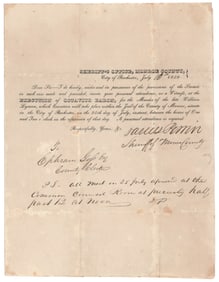 SHERIFF'S OFFICE, MONROE COUNTY,
City of Rochester, July 1858
Dear Sir—I do hereby, under and in pursuance of the provisions of the Statute
in such case made and provided, invite your personal attendance, as a Witness, at the
EXECUTION of OCTAVIUS BARON, for the Murder of the late William
Lyman, which Execution will take place within the Jail of the County of Monroe, situate
in the City of Rochester, on the 25th day of July, instant, between the hours of One
and in the afternoon of that day. A punctual attendance is required.
Respectfully, Yours, &c.
Sheriff of Monroe County
To
Ephraim
County
P.S. all meet on 25 July at the
Common Council Room at precisely half
past 12 at Noon